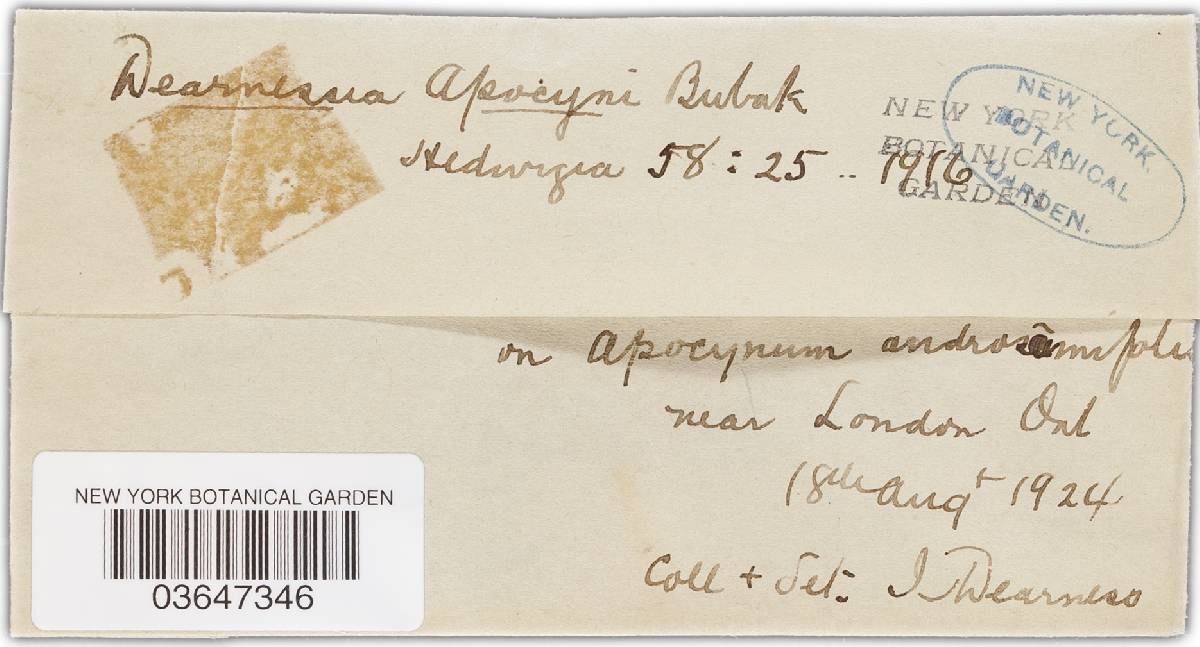 Dearnessia Apocyni Bubak
Hedwigia 58:25 .. 1916
NEW YORK
BOTANICAL
GARDEN
NEW YORK
BOTANICAL
GARDEN.
on Apocynum androsæmifoli
near London Ont
18th Augt 1924
Coll + Det: J Dearness
NEW YORK BOTANICAL GARDEN
03647346